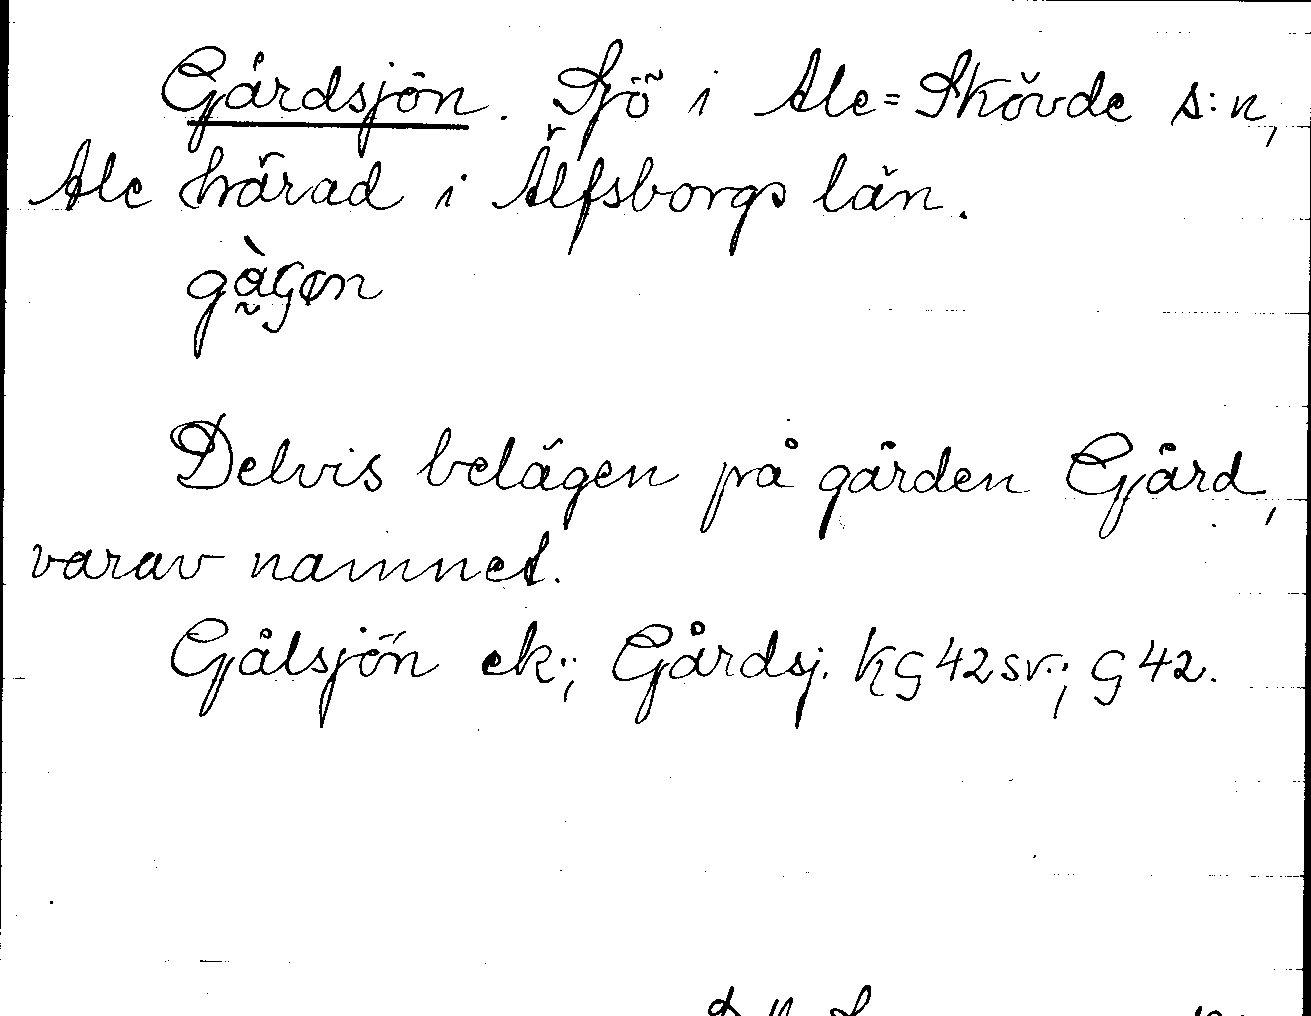 Gårdsjön. Sjö i Ale=Skövde s:n,
Ale härad i Älfsborgs län.
Delvis belägen på gården Gård,
varav namnet.
Gålsjön ek.; Gårdsj. KG 42 sv.; G 42.